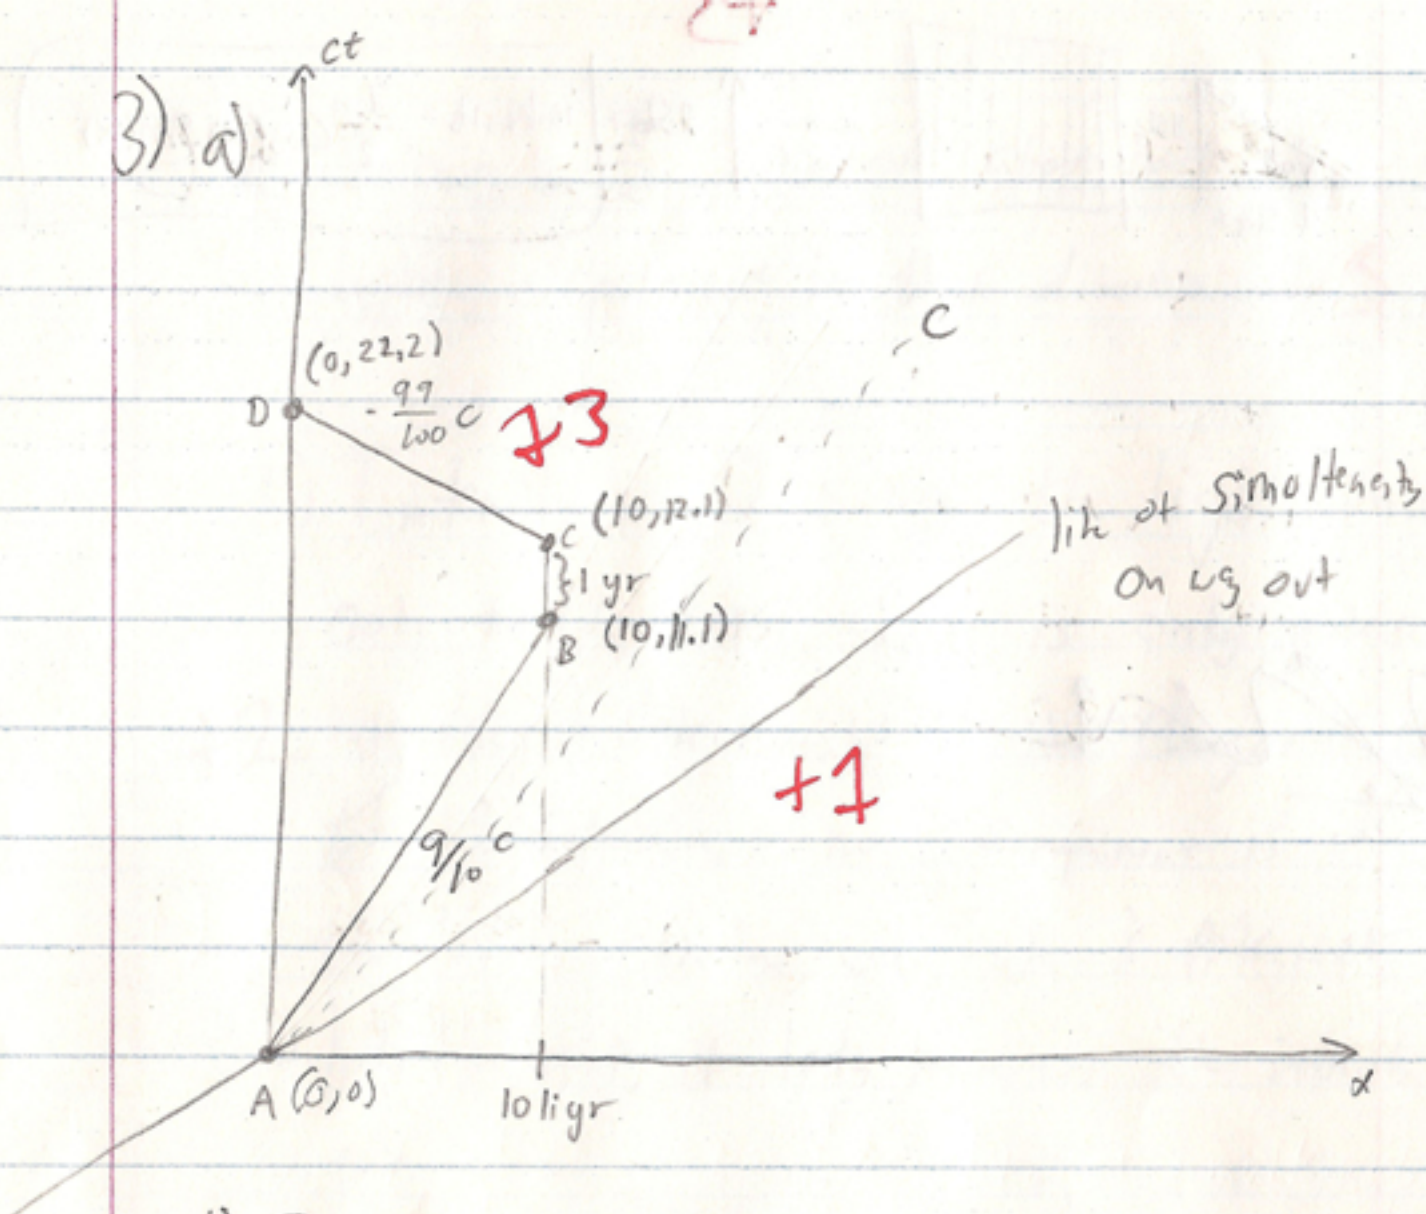 ct
3) a)
C
(0,22.2)
D
- 99/100 c
+3
C (10,12.1)
}1 yr
B (10,11.1)
line of simolteneity
on way out
9/10 c
+1
A (0,0)
10 liyr
x